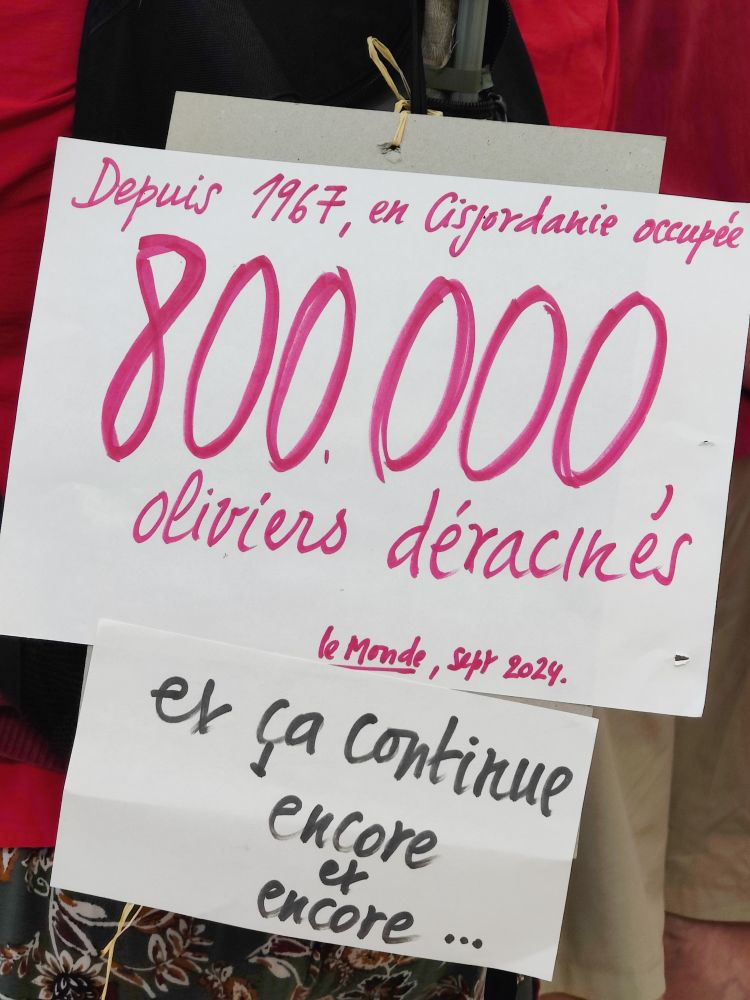 Depuis 1967, en Cisjordanie occupée
800.000
oliviers déracinés
le Monde, sept 2024.
et ça continue
encore
et
encore ...